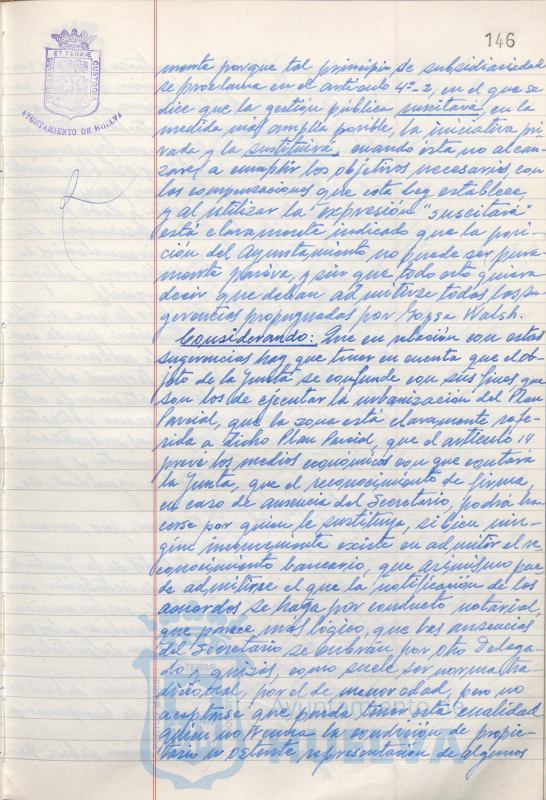 146
PORTUS MARIS ET TERRAE CUSTODIA
AYUNTAMIENTO DE HUELVA
mente porque tal principio de subsidiariedad
se proclama en el artículo 4º-2, en el que se
dice que la gestión pública suscitará, en la
medida más amplia posible, la iniciativa pri
vada y la sustituirá, cuando ésta no alcan
zare a cumplir los objetivos necesarios, con
las compensaciones que esta ley establece,
y al utilizar la expresión "suscitará"
está claramente indicado que la posi-
ción del Ayuntamiento no puede ser pura
mente pasiva, y sin que todo esto quiera
decir que deban admitirse todas las su
gerencias propugnadas por Walsh.
Considerando: Que en relación con estas
sugerencias hay que tener en cuenta que el ob
jeto de la Junta se confunde con sus fines que
son los de ejecutar la urbanización del Plan
Parcial, que la zona está claramente refe-
rida a dicho Plan Parcial, que el artículo 14
prevé los medios económicos con que contará
la Junta, que el reconocimiento de firma,
en caso de ausencia del Secretario, podrá ha
cerse por quien le sustituya, si bien nin-
gún inconveniente existe en admitir el re
conocimiento bancario, que asimismo pue
de admitirse el que la notificación de los
acuerdos se haga por conducto notarial,
que parece más lógico, que las ausencias
del Secretario se cubran por otro Delega-
do y quizás, como suele ser norma tra-
dicional, por el de menor edad, pero no
aceptarse que pueda tener esta cualidad
quien no reuna la condición de propie-
tario u ostente representación de algunos
Ayuntamiento de
HUELVA